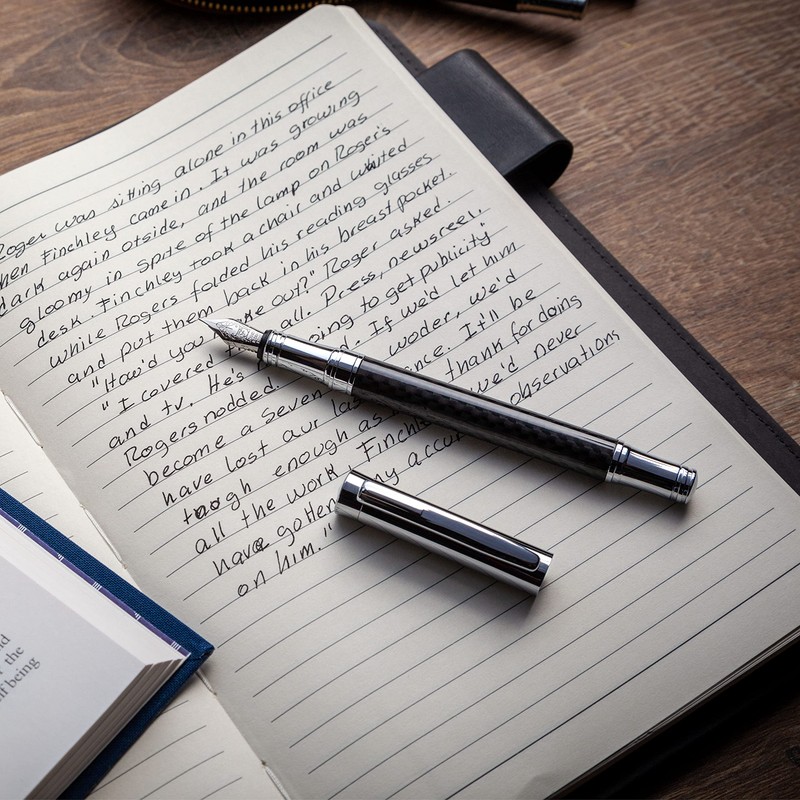 Roger was sitting alone in this office
when Finchley came in. It was growing
dark again otside, and the room was
gloomy in spite of the lamp on Roger's
desk. Finchley took a chair and waited
while Rogers folded his reading glasses
and put them back in his breast pocket.
"How'd you make out?" Roger asked.
"I covered all. Press, newsreel,
and tv. He's going to get publicity"
Rogers nodded. If we'd let him
become a seven woder, we'd
have lost aur ance. It'll be
tough enough as thank for doing
all the work Finchl we'd never
have gotten my accur observations
on him."
nd
the
being